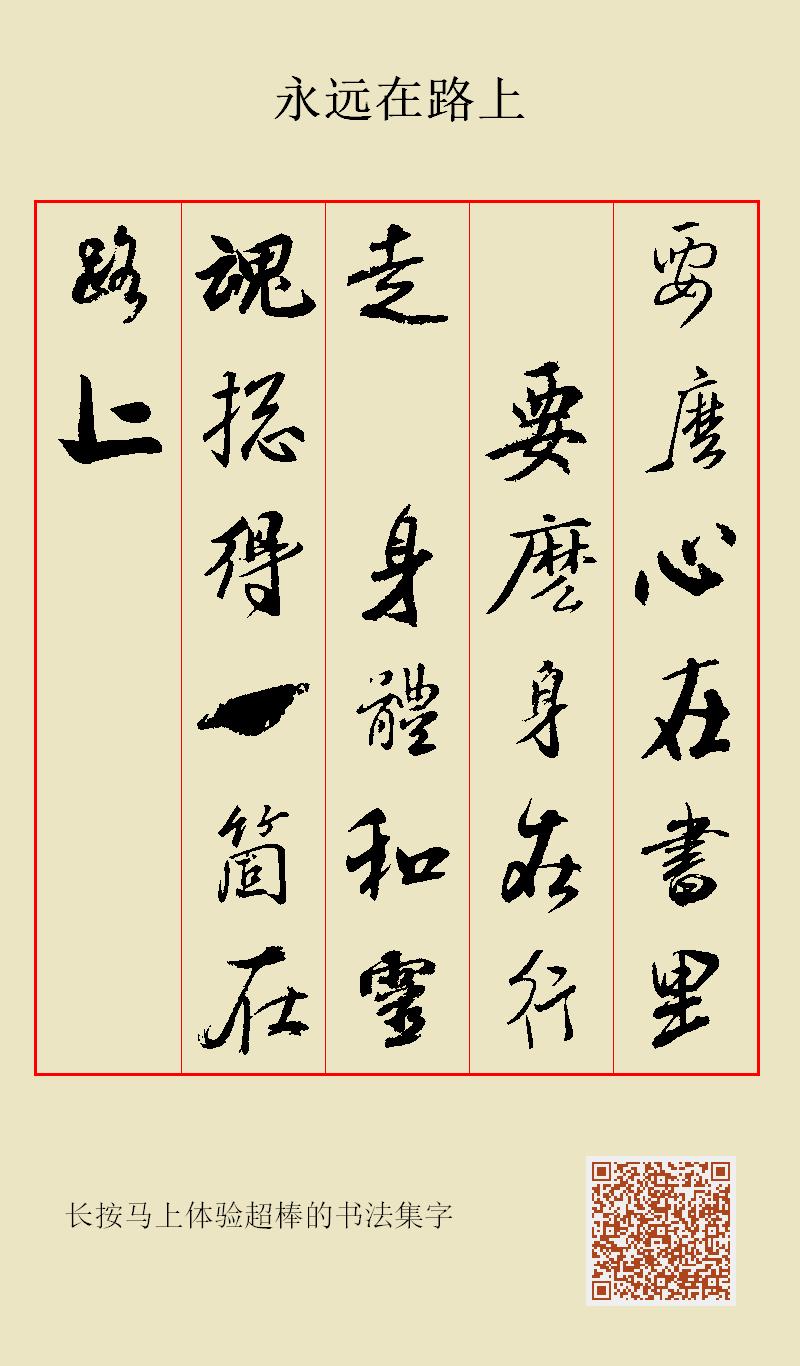 永远在路上
要麽心在書里
要麽身在行
走 身體和靈
魂揔得一箇在
路上
长按马上体验超棒的书法集字